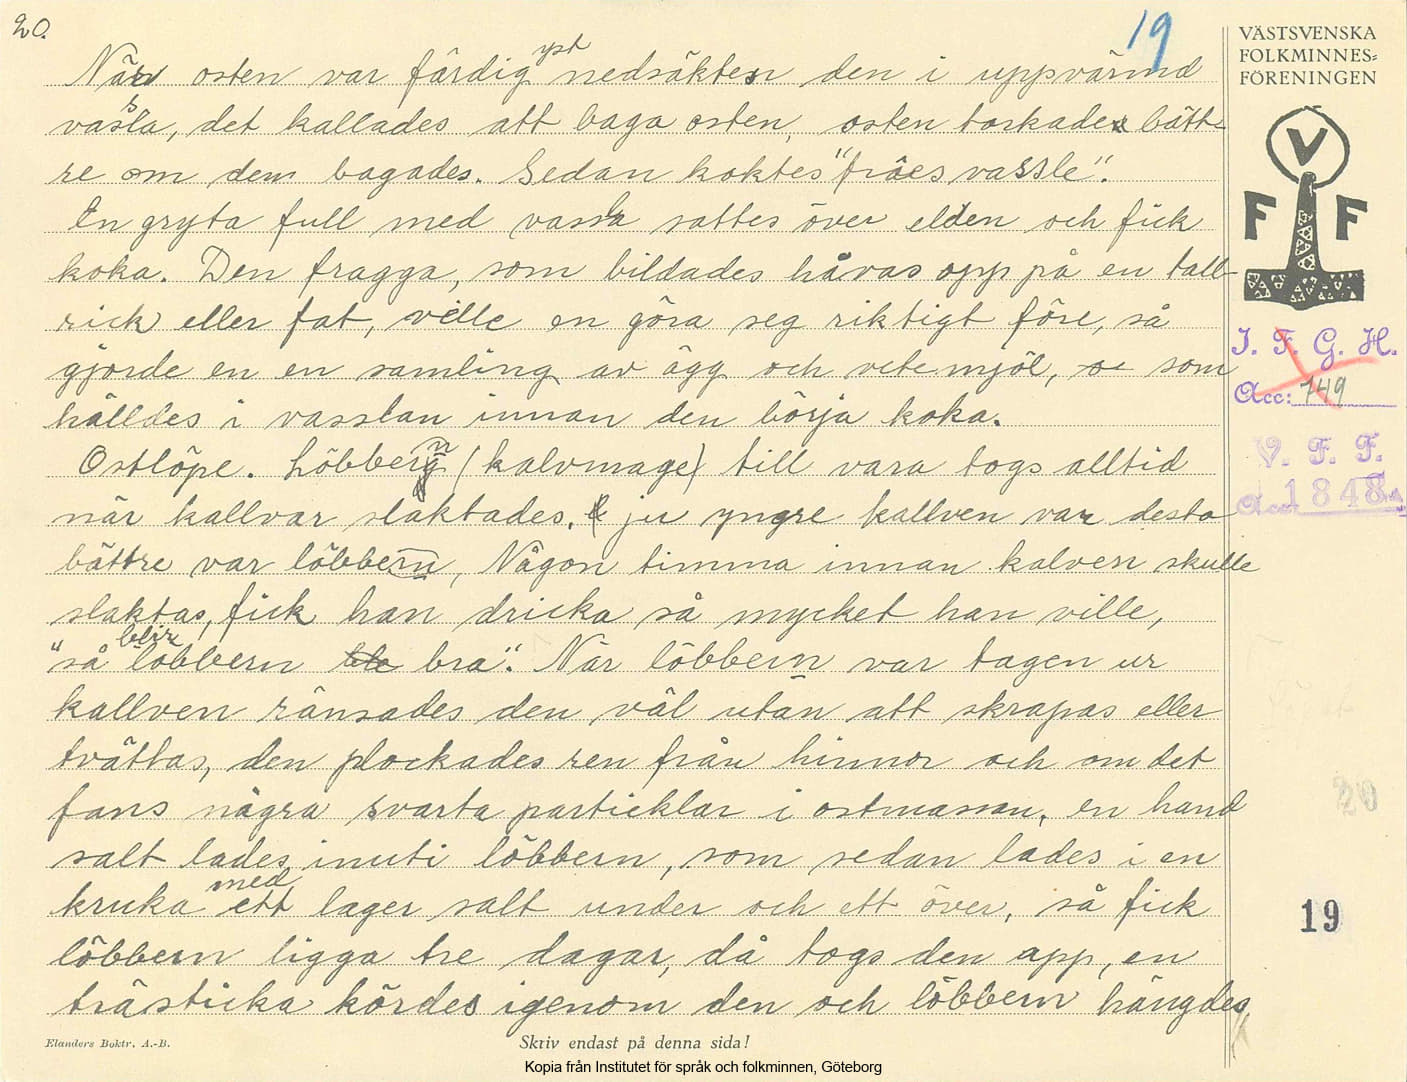 20.
19
VÄSTSVENSKA
FOLKMINNES=
FÖRENINGEN
V
F F
När osten var färdig yst nedsäktes den i uppvärmd
vassla, det kallades att baga osten, osten torkades bätt-
re om den bagades. Sedan koktes "fråes vassle".
En gryta full med vassla sattes över elden och fick
koka. Den fragga, som bildades håvas opp på en tall-
rick eller fat, ville en göra seg riktigt före, så
gjorde en en samling av ägg och vetemjöl, som
hälldes i vasslan innan den börja koka.
Ostlöpe. Löbbern (kalvmage) till vara togs alltid
när kallvar slaktades, ju yngre kallven var desto
bättre var löbbern, Någon timma innan kalven skulle
slaktas, fick han dricka så mycket han ville,
"så blir löbbern bra". När löbbern var tagen ur
kallven ränsades den väl utan att skrapas eller
tvättas, den plockades ren från hinnor och om det
fans några svarta partieklar i ostmassan, en hand
salt lades inuti löbbern, som sedan lades i en
kruka med ett lager salt under och ett över, så fick
löbbern ligga tre dagar, då togs den opp, en
trästicka kördes igenom den och löbbern hängdes
I. F. G. H.
Acc: 749
V. F. F.
Acc 1848
20
19
Elanders Boktr. A.-B.
Skriv endast på denna sida!
Kopia från Institutet för språk och folkminnen, Göteborg